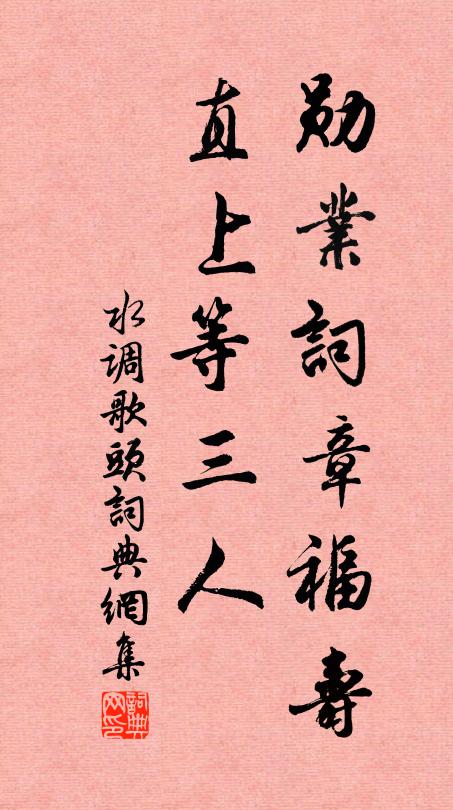 勛業詞章福壽
直上等三人
水调歌頭詞典網集
詞典网印